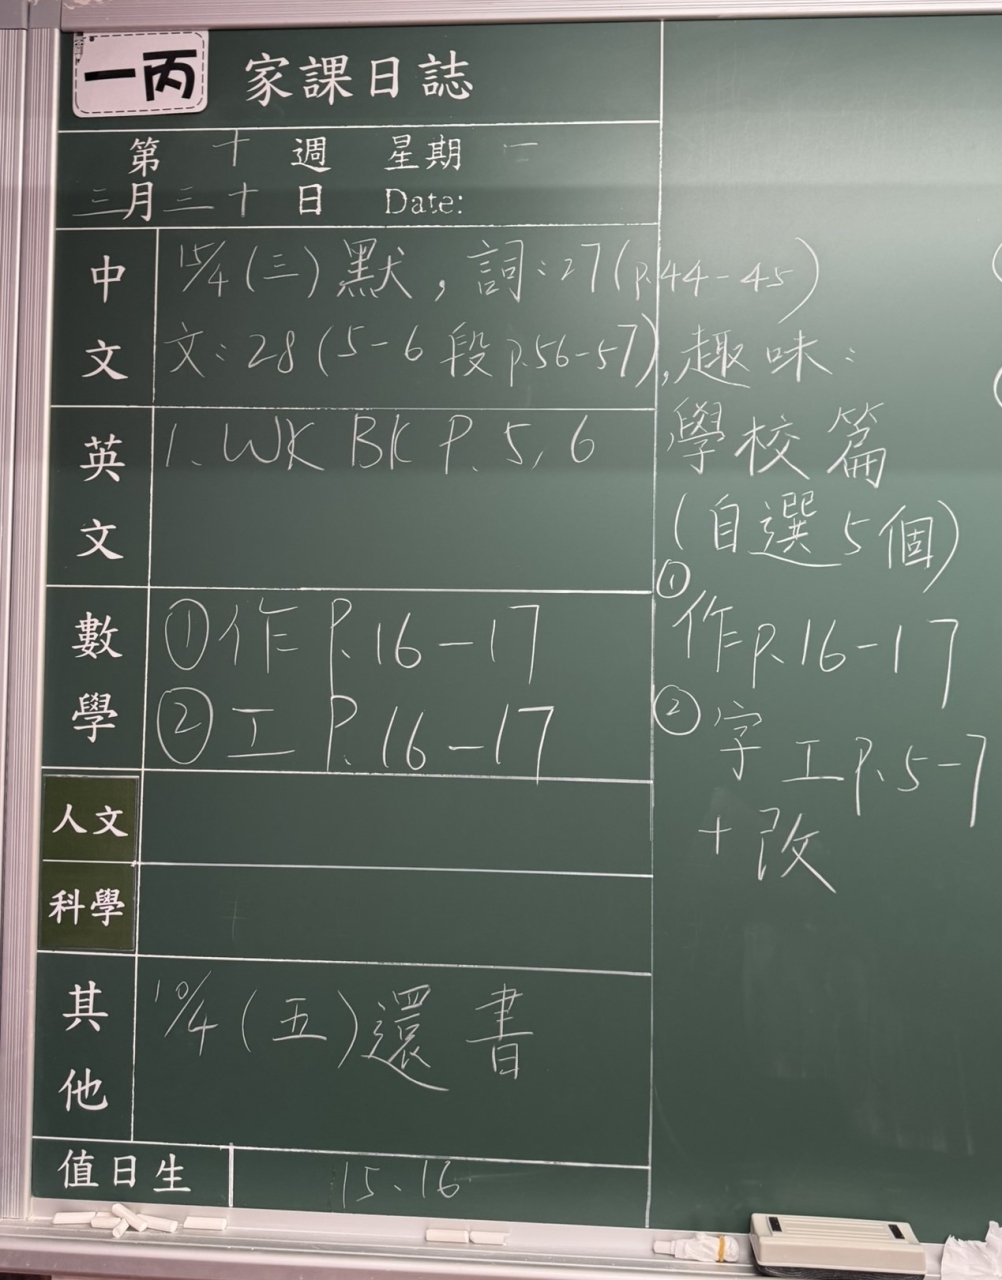 一丙 家課日誌
第 十 週 星期 一
三月三十日 Date:
中文
15/4(三)默，詞：27(p.44-45)
文：28(5-6段p.56-57)，趣味：
學校篇
(自選5個)
英文
1. WK BK P. 5, 6
數學
①作 P.16-17
②工 P.16-17
①
作p.16-17
②字工p.5-7
+改
人文
科學
其他
10/4(五)還書
值日生
15、16